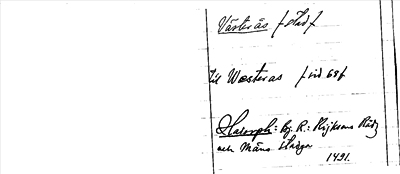 Västerås / stad /
til Westeras / vid 68 /
Hadorph: Bj. R.: Rijksens Rådz
och Mäns
1491.